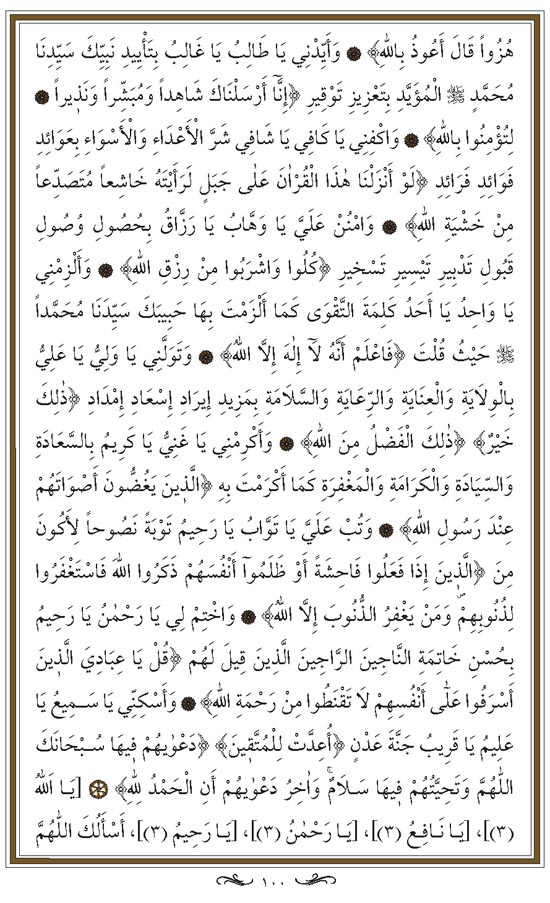 هُزُواً قَالَ أَعُوذُ بِاللّٰهِ﴾ ۞ وَأَيِّدْنِي يَا طَالِبُ يَا غَالِبُ بِتَأْيِيدِ نَبِيِّكَ سَيِّدِنَا
مُحَمَّدٍ ﷺ الْمُؤَيَّدِ بِتَعْزِيزِ تَوْقِيرِ ﴿إِنَّٓا أَرْسَلْنَاكَ شَاهِداً وَمُبَشِّراً وَنَذِيراً ۞
لِتُؤْمِنُوا بِاللّٰهِ﴾ ۞ وَاكْفِنِي يَا كَافِي يَا شَافِي شَرَّ الْأَعْدَاءِ وَالْأَسْوَاءِ بِعَوَائِدِ
فَوَائِدِ فَرَائِدِ ﴿لَوْ أَنْزَلْنَا هٰذَا الْقُرْاٰنَ عَلٰى جَبَلٍ لَرَأَيْتَهُ خَاشِعاً مُتَصَدِّعاً
مِنْ خَشْيَةِ اللّٰهِ﴾ ۞ وَامْنُنْ عَلَيَّ يَا وَهَّابُ يَا رَزَّاقُ بِحُصُولِ وُصُولِ
قَبُولِ تَدْبِيرِ تَيْسِيرِ تَسْخِيرِ ﴿كُلُوا وَاشْرَبُوا مِنْ رِزْقِ اللّٰهِ﴾ ۞ وَأَلْزِمْنِي
يَا وَاحِدُ يَا أَحَدُ كَلِمَةَ التَّقْوَى كَمَا أَلْزَمْتَ بِهَا حَبِيبَكَ سَيِّدَنَا مُحَمَّداً
ﷺ حَيْثُ قُلْتَ ﴿فَاعْلَمْ أَنَّهُ لَٓا إِلٰهَ إِلَّا اللّٰهُ﴾ ۞ وَتَوَلَّنِي يَا وَلِيُّ يَا عَلِيُّ
بِالْوِلَايَةِ وَالْعِنَايَةِ وَالرِّعَايَةِ وَالسَّلَامَةِ بِمَزِيدِ إِيرَادِ إِسْعَادِ إِمْدَادِ ﴿ذٰلِكَ
خَيْرٌ﴾ ﴿ذٰلِكَ الْفَضْلُ مِنَ اللّٰهِ﴾ ۞ وَأَكْرِمْنِي يَا غَنِيُّ يَا كَرِيمُ بِالسَّعَادَةِ
وَالسِّيَادَةِ وَالْكَرَامَةِ وَالْمَغْفِرَةِ كَمَا أَكْرَمْتَ بِهِ ﴿الَّذِينَ يَغُضُّونَ أَصْوَاتَهُمْ
عِنْدَ رَسُولِ اللّٰهِ﴾ ۞ وَتُبْ عَلَيَّ يَا تَوَّابُ يَا رَحِيمُ تَوْبَةً نَصُوحاً لِأَكُونَ
مِنَ ﴿الَّذِينَ إِذَا فَعَلُوا فَاحِشَةً أَوْ ظَلَمُوٓا أَنْفُسَهُمْ ذَكَرُوا اللّٰهَ فَاسْتَغْفَرُوا
لِذُنُوبِهِمْ وَمَنْ يَغْفِرُ الذُّنُوبَ إِلَّا اللّٰهُ﴾ ۞ وَاخْتِمْ لِي يَا رَحْمٰنُ يَا رَحِيمُ
بِحُسْنِ خَاتِمَةِ النَّاجِينَ الرَّاجِينَ الَّذِينَ قِيلَ لَهُمْ ﴿قُلْ يَا عِبَادِيَ الَّذِينَ
أَسْرَفُوا عَلٰٓى أَنْفُسِهِمْ لَا تَقْنَطُوا مِنْ رَحْمَةِ اللّٰهِ﴾ ۞ وَأَسْكِنِّي يَا سَمِيعُ يَا
عَلِيمُ يَا قَرِيبُ جَنَّةَ عَدْنٍ ﴿أُعِدَّتْ لِلْمُتَّقِينَ﴾ ﴿دَعْوٰيهُمْ فِيهَا سُبْحَانَكَ
اللّٰهُمَّ وَتَحِيَّتُهُمْ فِيهَا سَلَامٌۚ وَاٰخِرُ دَعْوٰيهُمْ أَنِ الْحَمْدُ لِلّٰهِ﴾ ۞ [يَا اَللّٰهُ
(٣)]، [يَا نَافِعُ (٣)]، [يَا رَحْمٰنُ (٣)]، [يَا رَحِيمُ (٣)]، أَسْأَلُكَ اللّٰهُمَّ
١٠٠